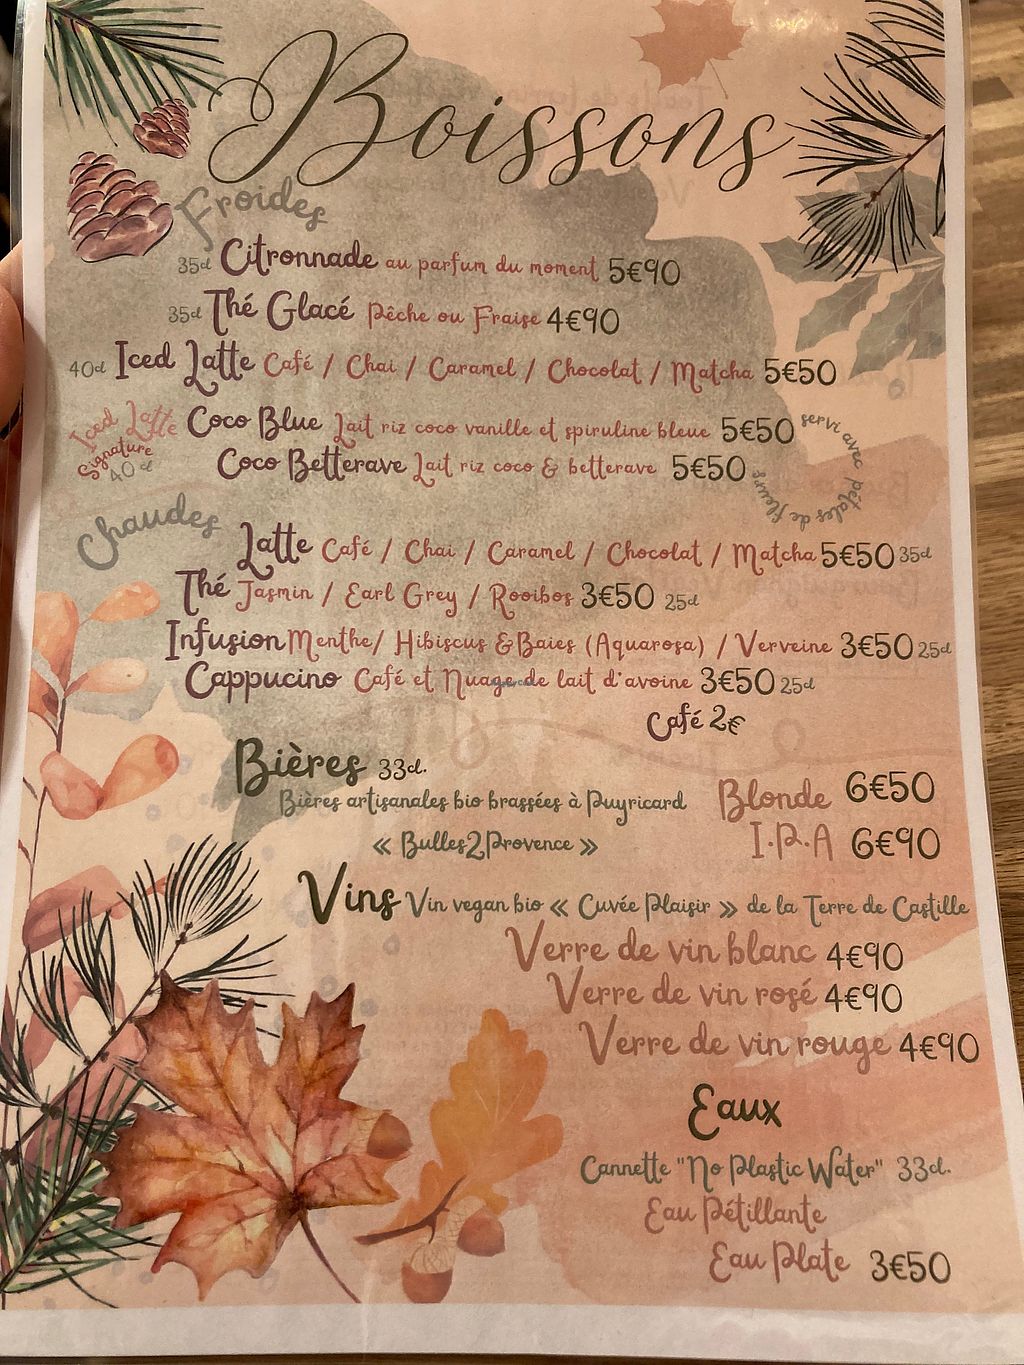 Boissons
Froides
35cl Citronnade au parfum du moment 5€90
35cl Thé Glacé Pêche ou Fraise 4€90
40cl Iced Latte Café / Chai / Caramel / Chocolat / Matcha 5€50
Iced Latte Signature 40 cl
Coco Blue Lait riz coco vanille et spiruline bleue 5€50
Coco Betterave Lait riz coco & betterave 5€50
servi avec pétales de fleurs
Chaudes
Latte Café / Chai / Caramel / Chocolat / Matcha 5€50 35cl
Thé Jasmin / Earl Grey / Rooibos 3€50 25cl
Infusion Menthe/ Hibiscus & Baies (Aquarosa) / Verveine 3€50 25cl
Cappucino Café et Nuage de lait d'avoine 3€50 25cl
Café 2€
Bières 33cl.
Bières artisanales bio brassées à Puyricard
« Bulles2Provence »
Blonde 6€50
I.P.A 6€90
Vins Vin vegan bio « Cuvée Plaisir » de la Terre de Castille
Verre de vin blanc 4€90
Verre de vin rosé 4€90
Verre de vin rouge 4€90
Eaux
Cannette "No Plastic Water" 33cl.
Eau Pétillante
Eau Plate 3€50